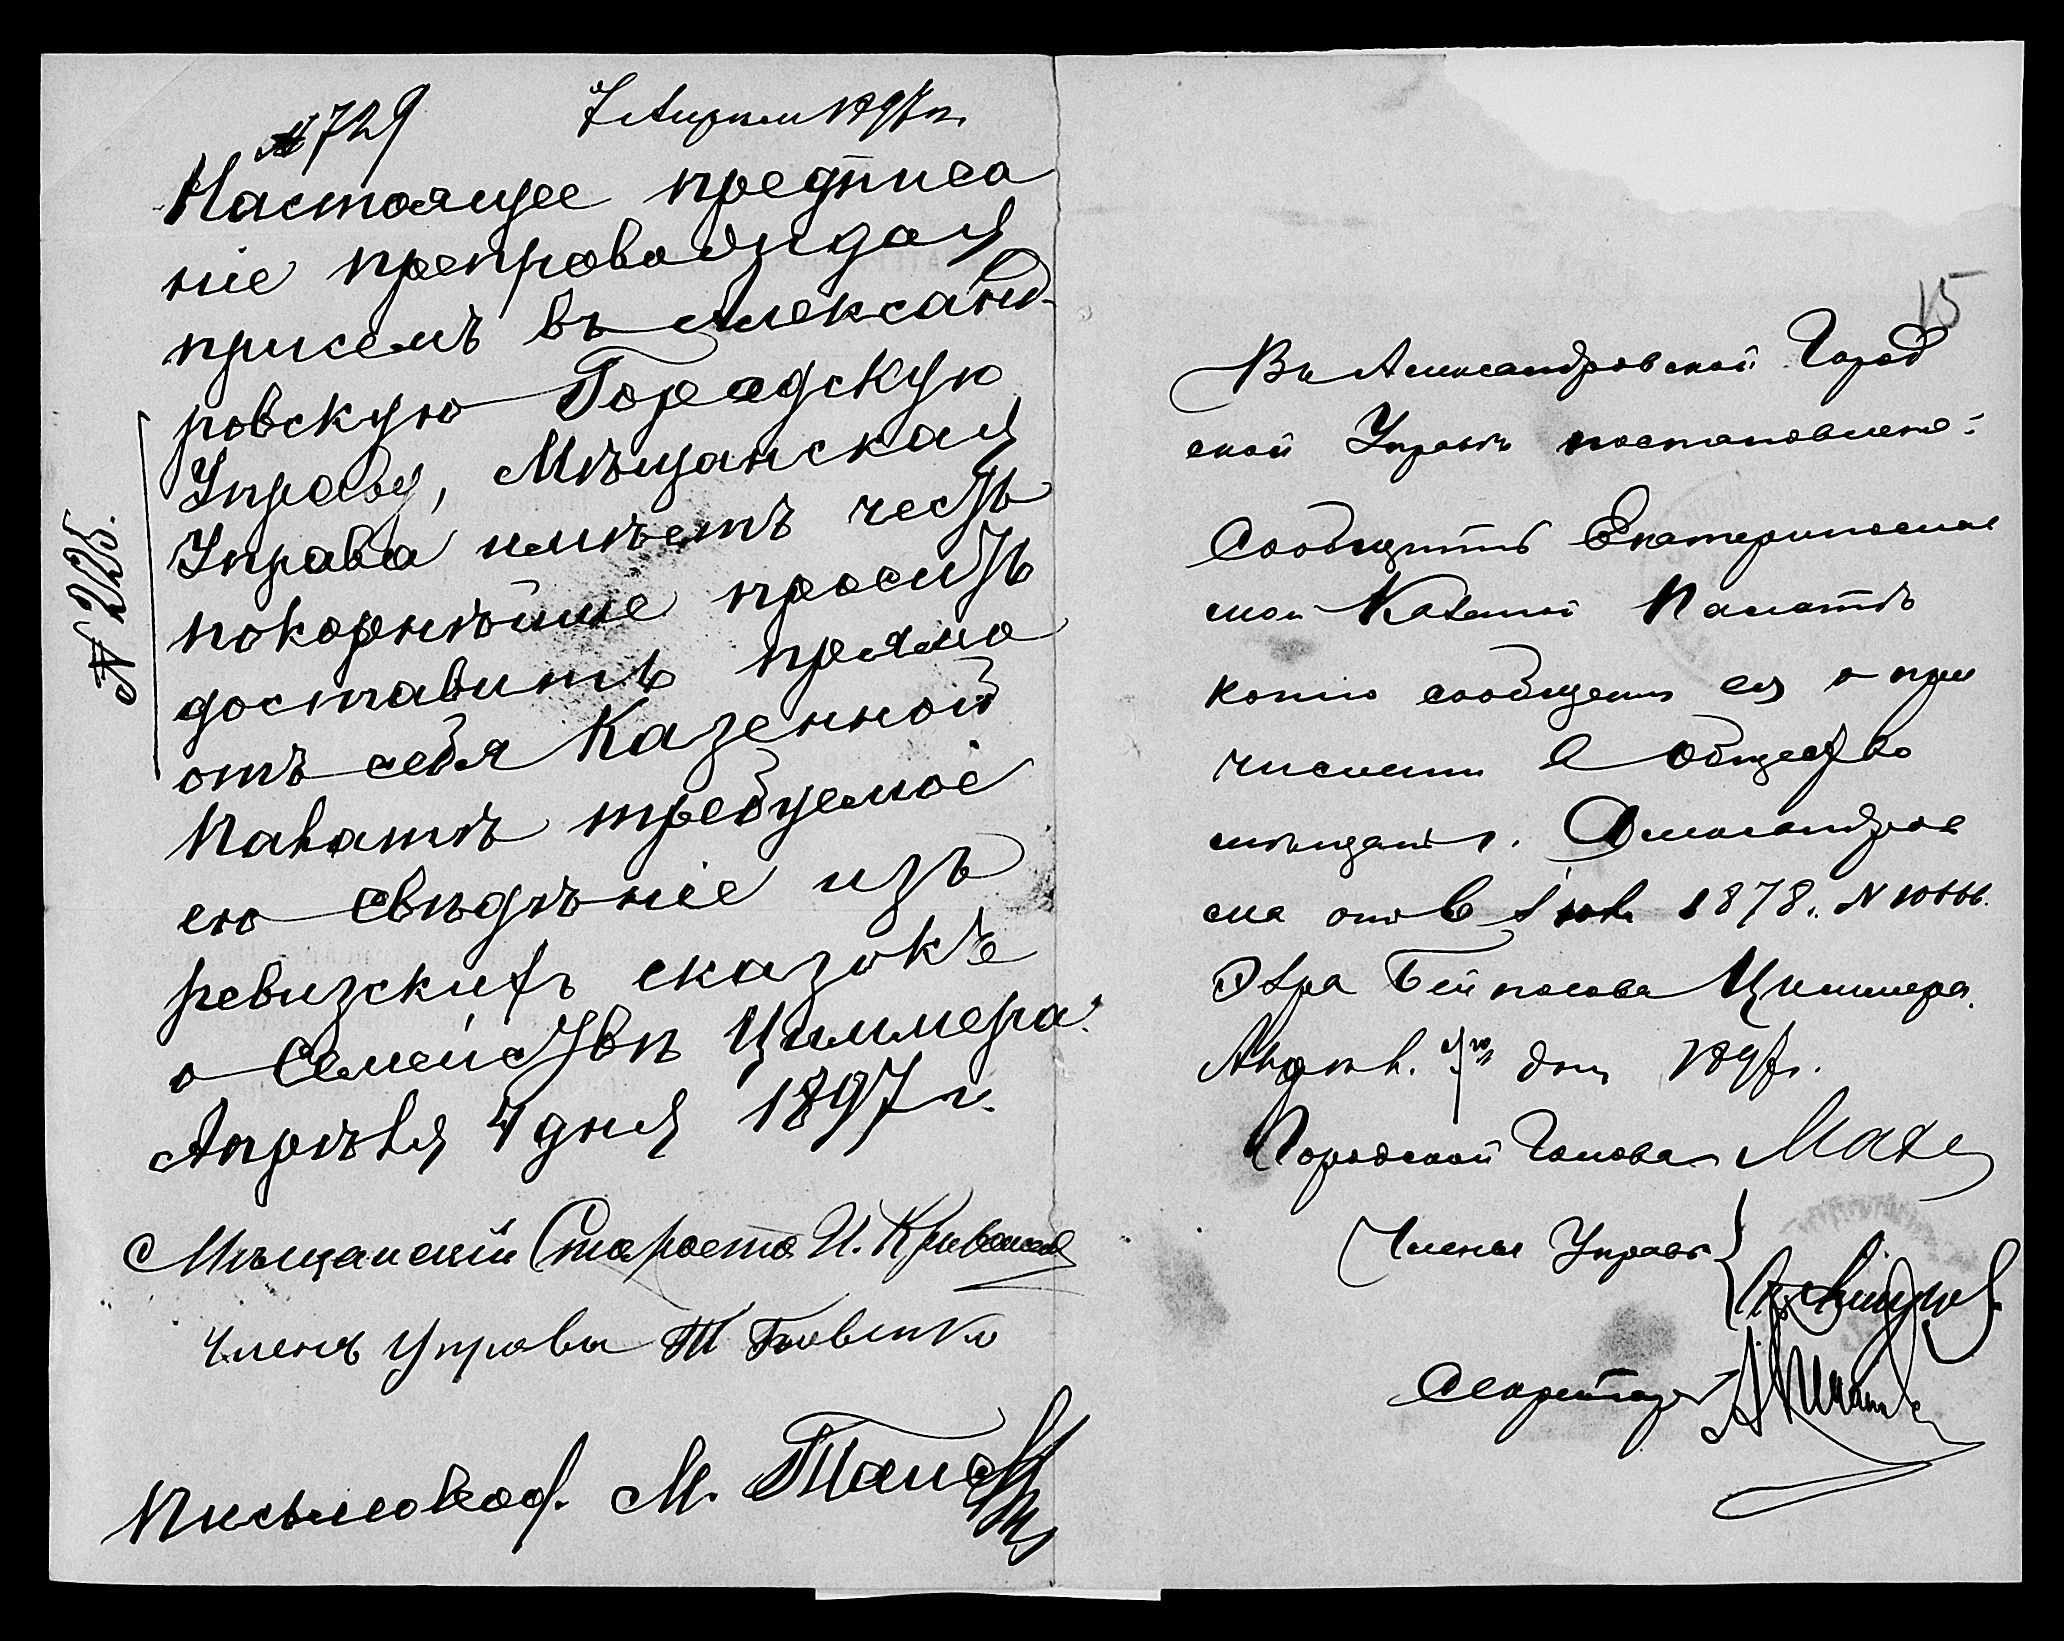 № 729
7 Апреля 1897 г.
Настоящее предписа
ніе препровождая
присемъ въ Александ-
ровскую Городскую
Управу, Мѣщанская
Управа имѣетъ честь
покорнѣйше просить
доставить прямо
отъ себя Казенной
Палатѣ требуемое
ею свѣдѣніе изъ
ревизскихъ сказокъ
о Семействѣ Циммера.
Апрѣля 4 дня 1897 г.
№ 225.
Мѣщанскій Староста И.
Членъ Управы
Письмовод. М.
15
Въ Александровской Город
ской Управѣ постановлено:
Сообщить Екатеринослав
ской Казенной Палатѣ
копію сообщенія ея о при
численіи в общество
мѣщанъ г. Александров
ска отъ 6 1878 г. №
Бейнасова Циммера.
Апрѣл. 7го дня 1897 г.
Городской Голова
Члены Управы
Секретарь